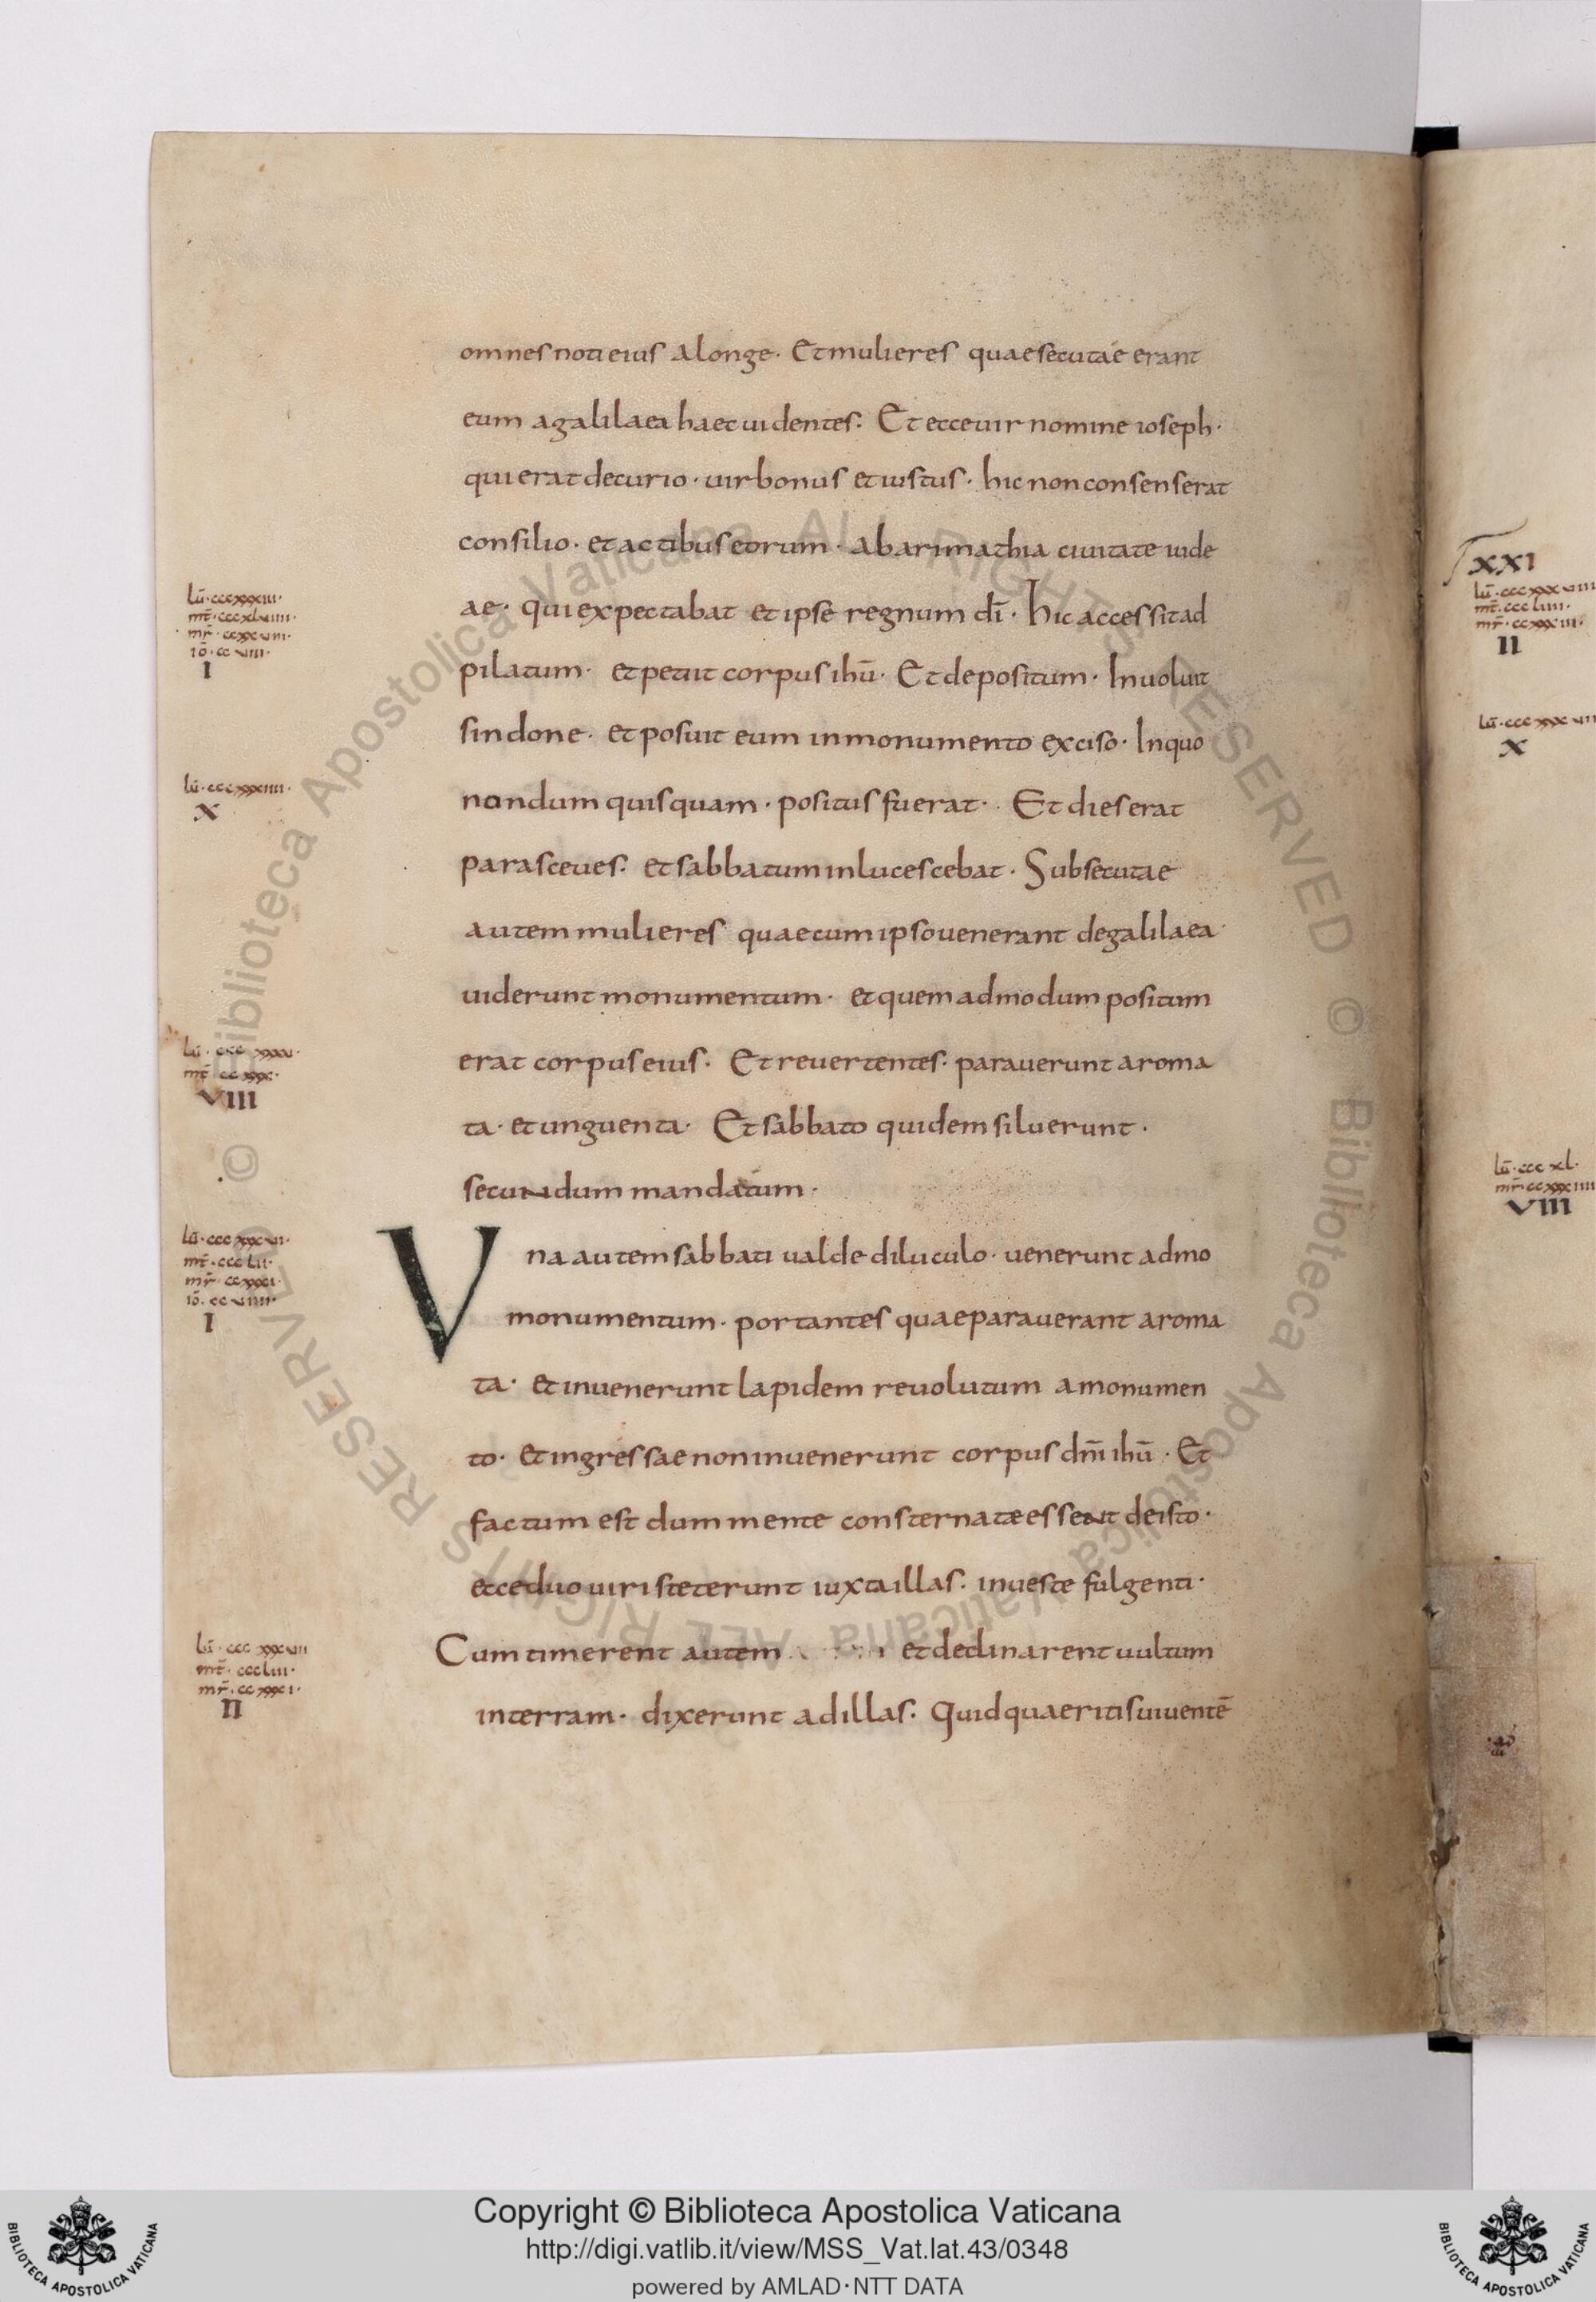 omnes noti eius a longe · Et mulieres quae secutae erant
eum a galilaea haec uidentes · Et ecce uir nomine ioseph ·
qui erat decurio · uir bonus et iustus · hic non consenserat
consilio · et actibus eorum · ab arimathia ciuitate iude
ae · qui expectabat et ipse regnum dī · hic accessit ad
pilatum · et petiit corpus ihū · Et depositum · Inuoluit
sindone · et posuit eum in monumento exciso · In quo
nondum quisquam · positus fuerat · Et dies erat
parasceues · et sabbatum inlucescebat · Subsecutae
autem mulieres quae cum ipso uenerant de galilaea ·
uiderunt monumentum · et quemadmodum positum
erat corpus eius · Et reuertentes · parauerunt aroma
ta · et unguenta · Et sabbato quidem siluerunt ·
secundum mandatum ·
Vna autem sabbati ualde diluculo · uenerunt ad mo
monumentum · portantes quae parauerant aroma
ta · et inuenerunt lapidem reuolutum a monumen
to · et ingressae non inuenerunt corpus dn̄i ihū · Et
factum est dum mente consternatae essent de isto ·
ecce duo uiri steterunt iuxta illas · in ueste fulgenti ·
Cum timerent autem et declinarent uultum
in terram · dixerunt ad illas · Quid quaeritis uiuentē
lū · cccxxxiii ·
mt̄ · cccxluiiii ·
mr̄ · ccxxuiii ·
iō · ccuiiii ·
I
lū · cccxxxiiii ·
X
lū · cccxxxu ·
mt̄ · ccxxx ·
VIII
lū · cccxxxui ·
mt̄ · cccLii ·
mr̄ · ccxxxi ·
iō · ccuiiii ·
I
lū · cccxxxuii
mt̄ · cccLiii ·
mr̄ · ccxxxi ·
II
XXI
lū · cccxxxuiii
mt̄ · cccliiii ·
mr̄ · ccxxxiii ·
II
X
lū · cccxl ·
mr̄ · ccxxxiiii
VIII
© Biblioteca Apostolica Vaticana ALL RIGHTS RESERVED
© Biblioteca Apostolica Vaticana ALL RIGHTS RESERVED
Copyright © Biblioteca Apostolica Vaticana
http://digi.vatlib.it/view/MSS_Vat.lat.43/0348
powered by AMLAD·NTT DATA
BIBLIOTECA APOSTOLICA VATICANA
BIBLIOTECA APOSTOLICA VATICANA